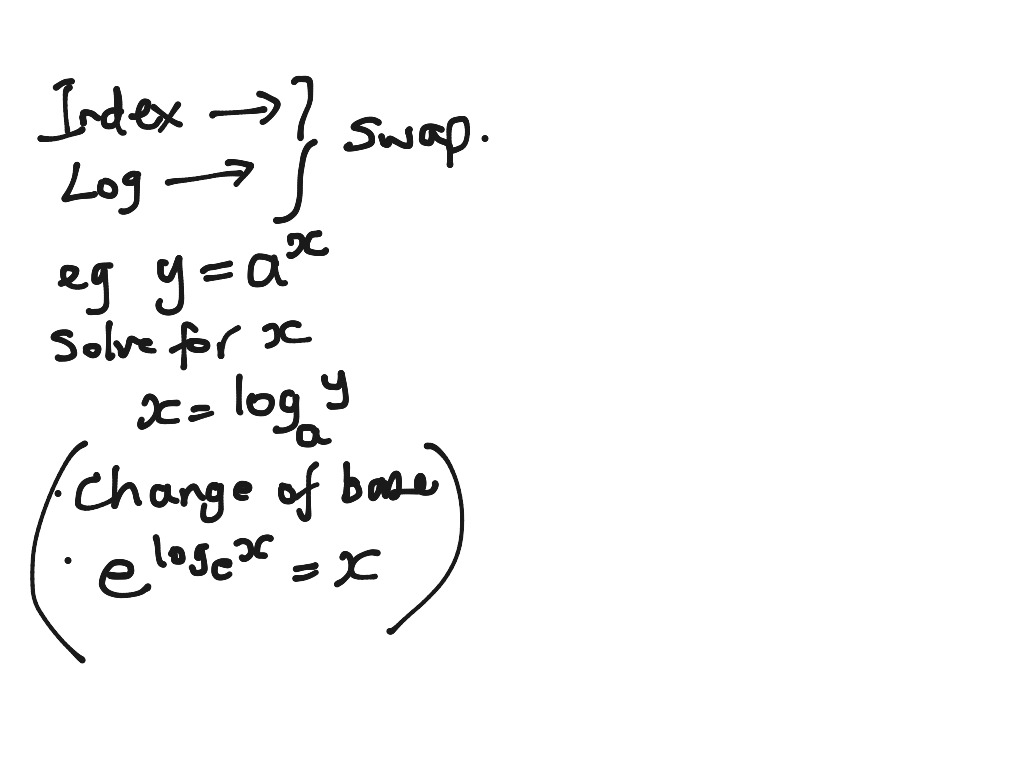 Index →
Log → } swap.
eg y = a^x
Solve for x
x = log_a y
(· Change of base
· e^{log_e x} = x)